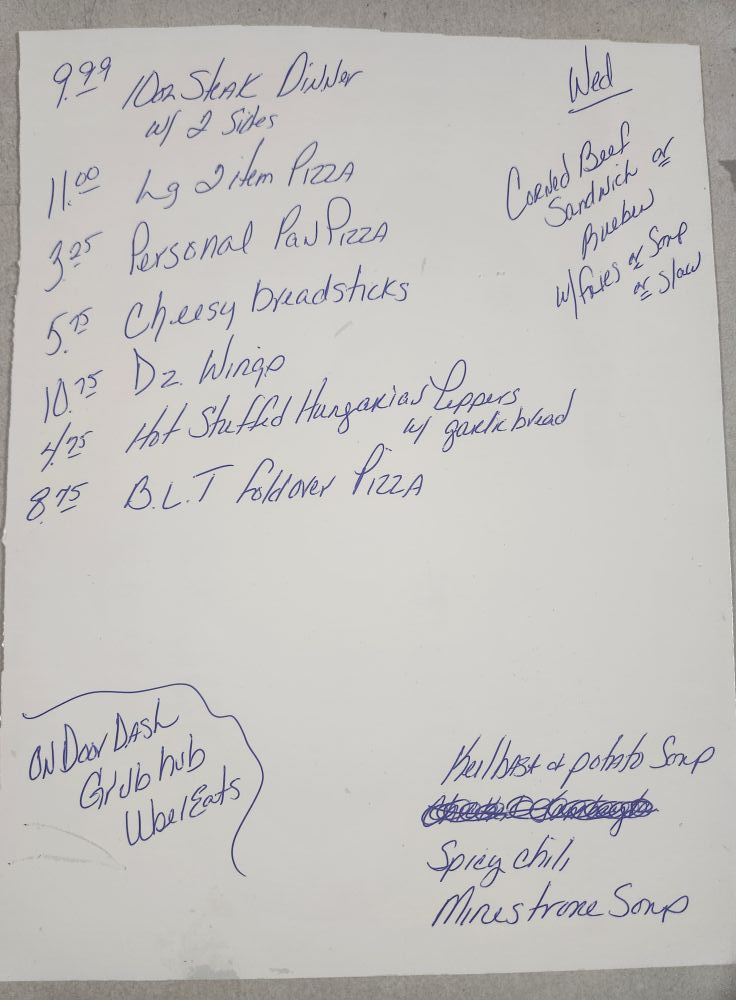 9.99 10oz Steak Dinner
w/ 2 Sides
11.00 Lg 2 item Pizza
3.25 Personal Pan Pizza
5.75 Cheesy breadsticks
10.75 Dz. Wings
4.75 Hot Stuffed Hungarian Peppers
w/ garlic bread
8.75 B.L.T foldover Pizza
Wed
Corned Beef
Sandwich or
Rueben
w/ fries or Soup
or slaw
ON Door Dash
Grub hub
Uber Eats
Keilbasa & potato Soup
Spicy chili
Minestrone Soup